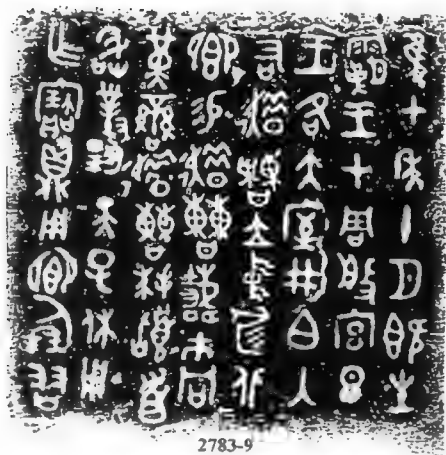 隹七年十月既生
霸王才周般宮旦
王各大室井白入
右趞曹立中廷北
鄉易趞曹載巿冋
黃䜌趞曹拜𩒨首
敢對揚天子休用
乍寶鼎用鄉倗友
2783-9